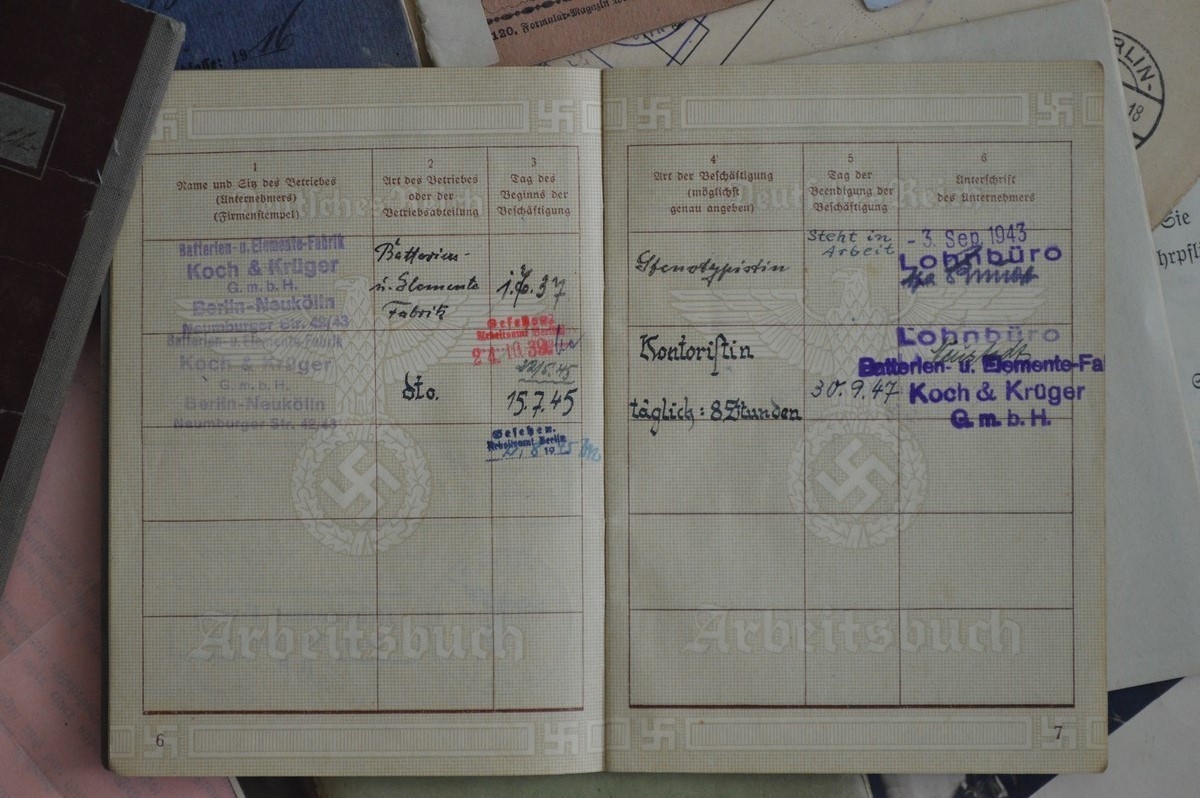 120. Formular-Magazin
16
BERLIN-
18
Sie
hrpfli
1
Name und Sitz des Betriebes
(Unternehmers)
(Firmenstempel)
2
Art des Betriebes
oder der
Betriebsabteilung
3
Tag des
Beginns der
Beschäftigung
Batterien- u. Elemente-Fabrik
Koch & Krüger
G. m. b. H.
Berlin-Neukölln
Naumburger Str. 42/43
Batterien-
u. Elemente
Fabrik
37
Gesehen:
Arbeitsamt Berlin
24. 10. 39
Batterien- u. Elemente-Fabrik
Koch & Krüger
G. m. b. H.
Berlin-Neukölln
Naumburger Str. 42/43
dto.
15.7.45
Gesehen.
Arbeitsamt Berlin
19
Deutsches Reich
Arbeitsbuch
6
4
Art der Beschäftigung
(möglichst
genau angeben)
5
Tag der
Beendigung der
Beschäftigung
6
Unterschrift
des Unternehmers
Stenotypistin
Steht in
Arbeit
- 3. Sep. 1943
Lohnbüro
Kontoristin
täglich: 8 Stunden
30.9.47
Lohnbüro
Batterien- u. Elemente-Fa
Koch & Krüger
G. m. b. H.
Deutsches Reich
Arbeitsbuch
7